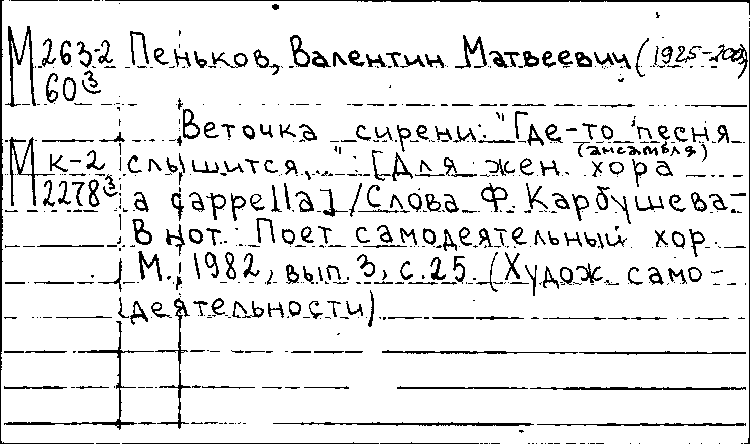 М 263-2 Пеньков, Валентин Матвеевич (1925-
60③
Веточка сирени: "Где-то песня
М к-2 слышится,..." : [Для жен. хора (ансамбля)
2278③ a cappella] / Слова Ф. Карбушева.-
В нот.: Поет самодеятельный хор.
М., 1982, вып. 3, с. 25. (Худож. само-
деятельности)